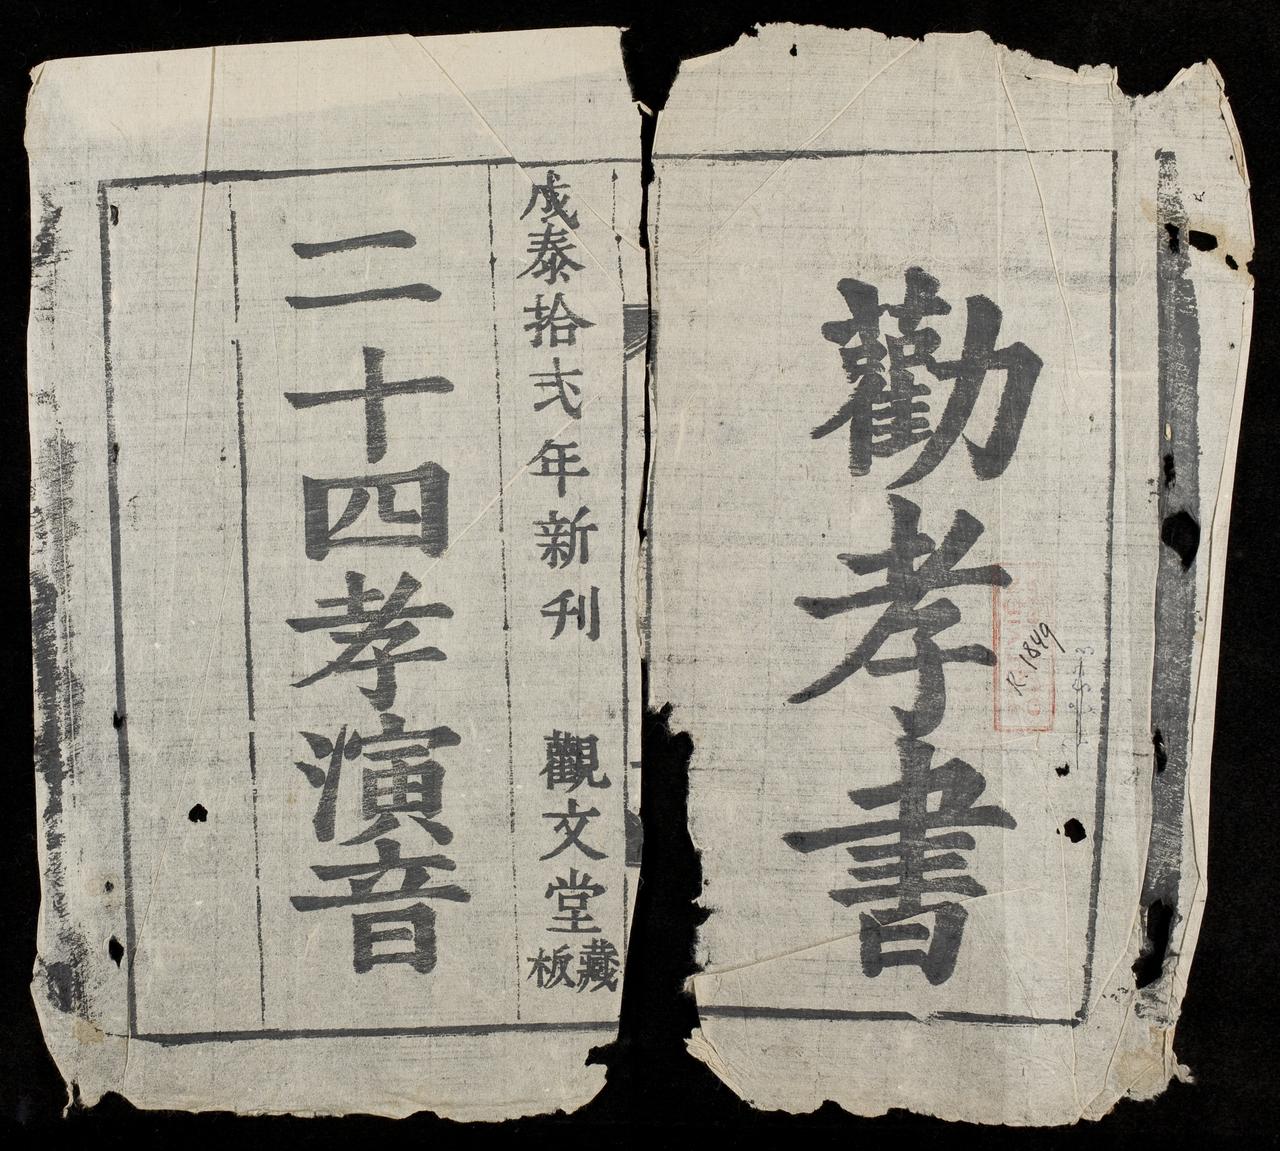 勸孝書
K.1849
成泰拾弍年新刊 觀文堂藏板
二十四孝演音